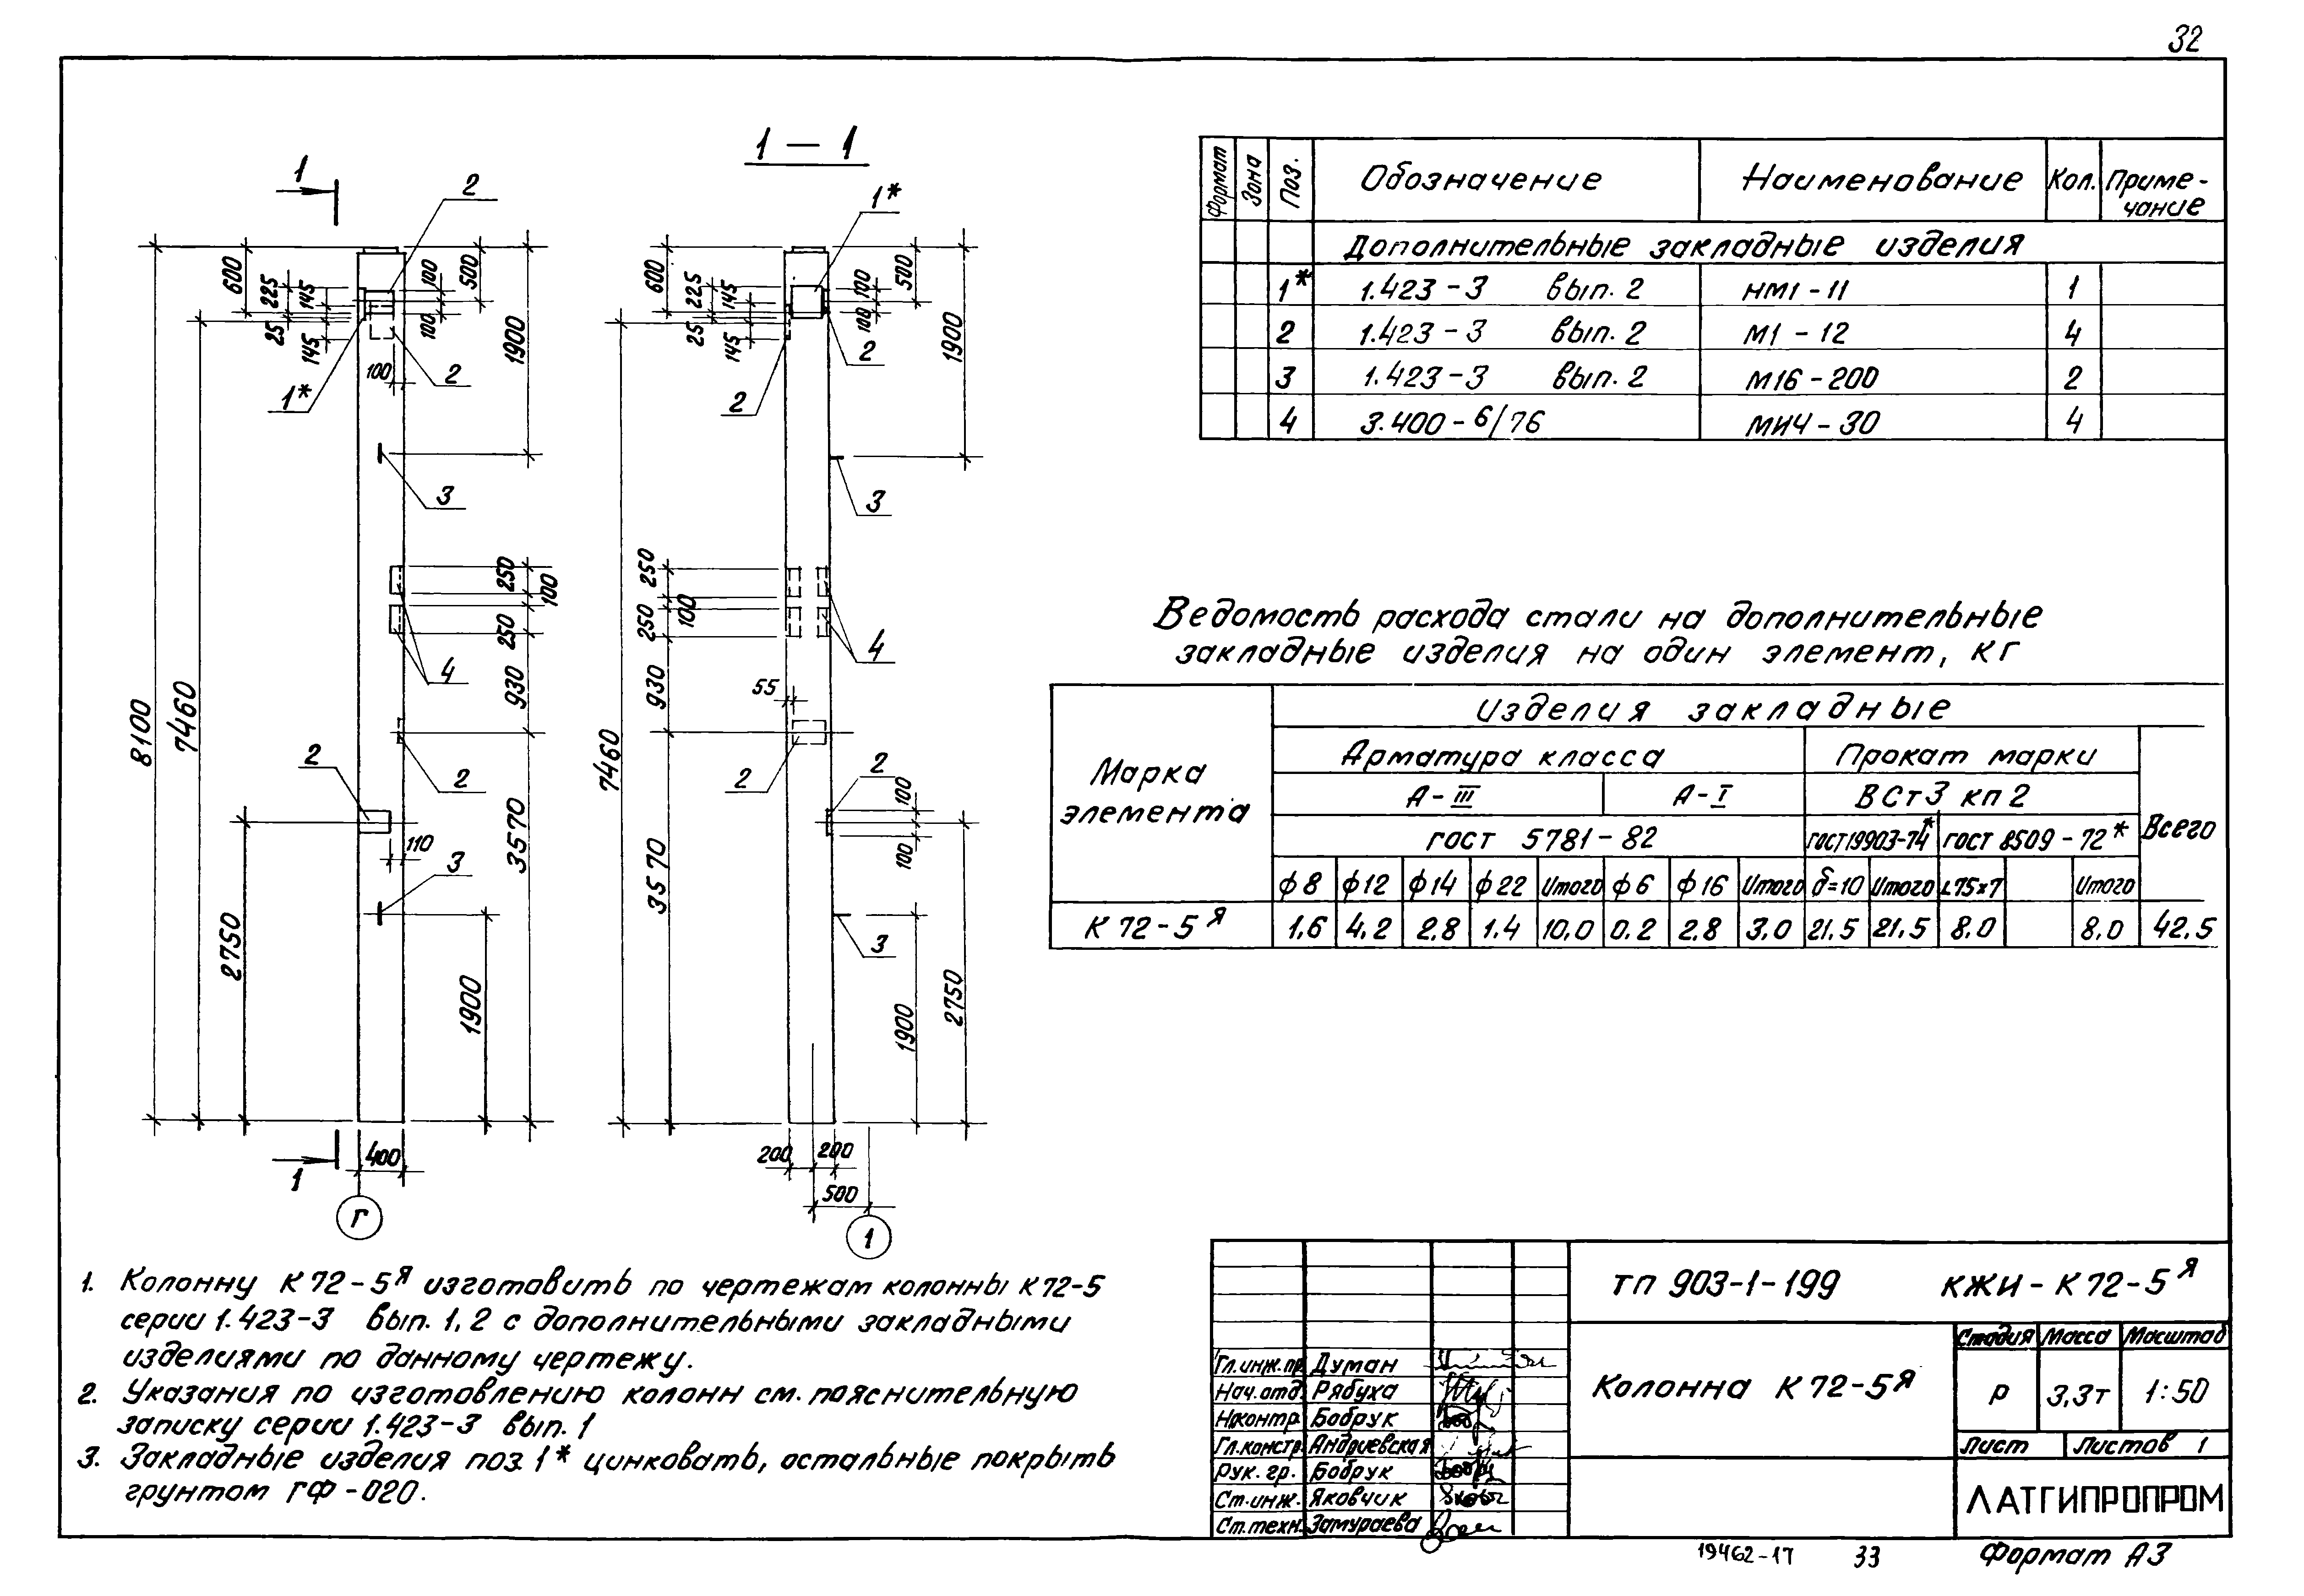 32
1 — 1
1
2
1*
600
225
145
25
145
100
100
500
1900
100
2
1*
3
250
100
250
4
930
8100
7460
2
2
110
3570
3
2750
1900
400
1
Г
600
225
145
25
145
100
100
500
1900
2
2
3
250
100
250
4
930
55
7460
2
2
100
100
3570
3
2750
1900
200
200
500
1
Формат
Зона
Поз.
Обозначение
Наименование
Кол.
Приме-
чание
Дополнительные закладные изделия
1* 1.423-3 вып. 2 НМ1-11 1
2 1.423-3 вып. 2 М1-12 4
3 1.423-3 вып. 2 М16-200 2
4 3.400-6/76 МИ4-30 4
Ведомость расхода стали на дополнительные
закладные изделия на один элемент, кг
Марка
элемента
Изделия закладные
Арматура класса
Прокат марки
А-III
А-I
ВСт3 кп2
Всего
ГОСТ 5781-82
ГОСТ19903-74*
ГОСТ 8509-72*
ϕ8 ϕ12 ϕ14 ϕ22 Итого ϕ6 ϕ16 Итого δ=10 Итого L75×7 Итого
К72-5Я 1,6 4,2 2,8 1,4 10,0 0,2 2,8 3,0 21,5 21,5 8,0 8,0 42,5
1. Колонну К72-5Я изготовить по чертежам колонны К72-5
серии 1.423-3 вып. 1,2 с дополнительными закладными
изделиями по данному чертежу.
2. Указания по изготовлению колонн см. пояснительную
записку серии 1.423-3 вып. 1
3. Закладные изделия поз. 1* цинковать, остальные покрыть
грунтом ГФ-020.
ТП 903-1-199 КЖИ-К72-5Я
Колонна К72-5Я
Стадия Масса Масштаб
Р 3,3т 1:50
Лист Листов 1
Гл.инж.пр. Думан
Нач.отд. Рябуха
Н.контр. Бобрук
Гл.констр. Андриевская
Рук. гр. Бобрук
Ст.инж. Яковчик
Ст.техн. Замураева
ЛАТГИПРОПРОМ
19462-17 33 Формат А3